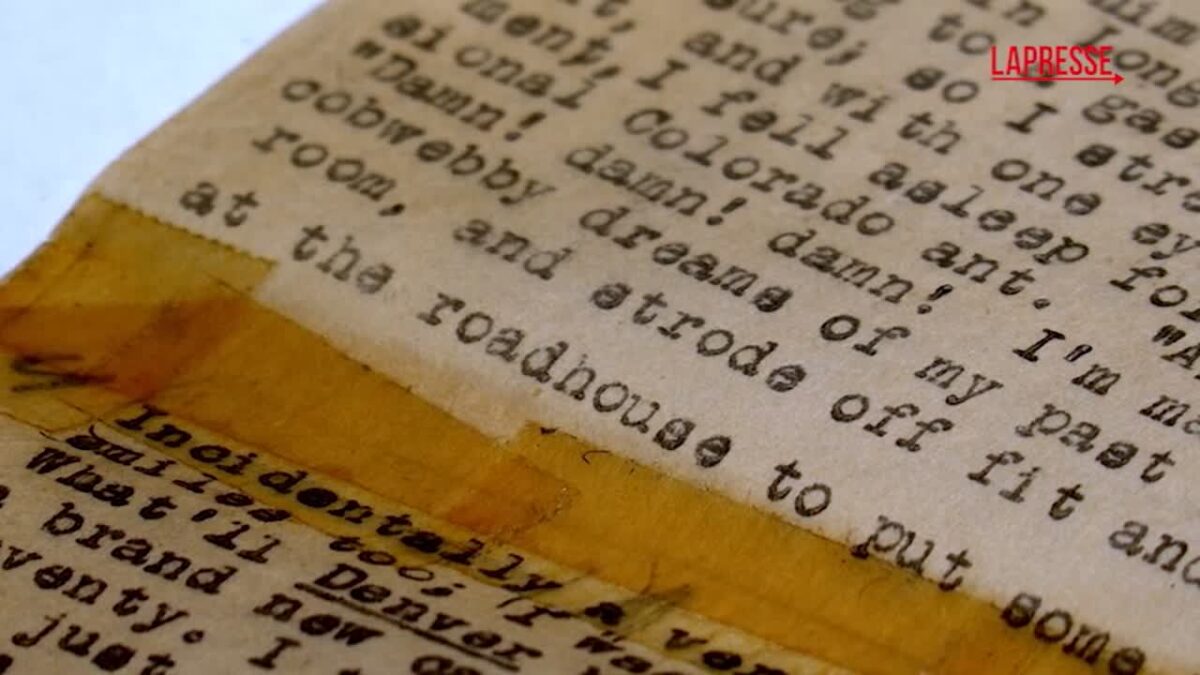 him
in Long
to gas
sure; so I stra
it, and with one ey
ment, I fell asleep fo
sional Colorado ant. "A
"Damn! damn! damn! I'm ma
cobwebby dreams of my past
room, and strode off fit and
at the roadhouse to put some
Incidentally a ver
smiles too; was
What'll Denver
brand new
venty. I
just
LAPRESSE